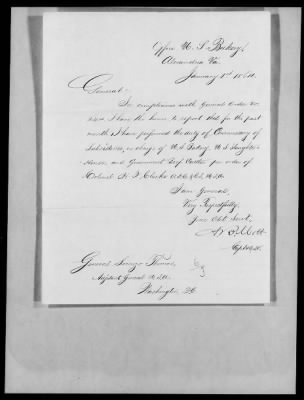 Office U. S. Bakery,
Alexandria Va.
January 1st 186
General:
In compliance with General Order No.
I have the honor to report that for the past
month I have performed the duty of Commissary of
Subsistence, in charge of U S Bakery, U S Slaughter
House, and Government Beef Cattle per order of
Colonel
I am General,
Very Respectfully,
Your Obt Servt,
General Lorenzo Thomas,
Adjutant General U.S.A.
Washington, D.C.